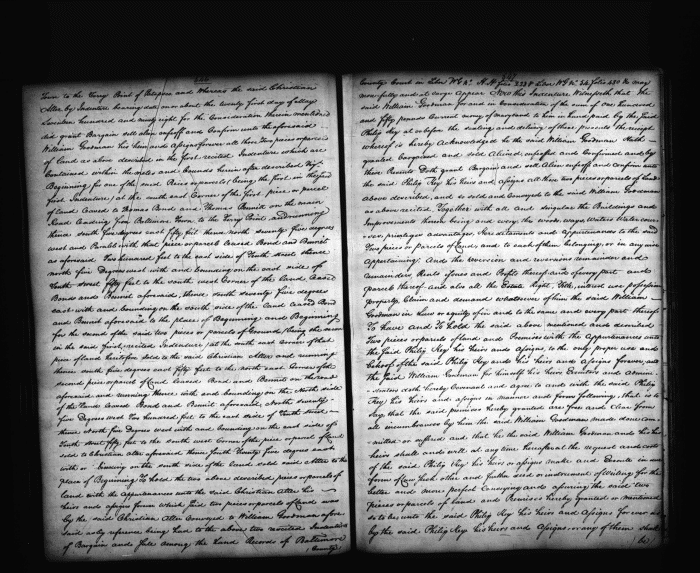 Town to the Ferry Point of Patapsco and Whereas the said Christian
Alter by Indenture bearing date on or about the twenty first day of May
Seventeen hundred and ninety eight for the Consideration therein mentioned
did grant Bargain sell alien enfeoff and Confirm unto the aforesaid
William Goodman his heirs and Assigns forever all those two pieces or parcels
of Land as above described in the first recited Indenture which are
Contained within the metes and bounds herein after described Viz
Beginning for one of the said Pieces or parcels, being the first in the said
first Indenture, at the south east Corner of the first piece or parcel
of Land Leased to Thomas Bond and Thomas Bunnit on the main
Road Leading from Baltimore Town to the Ferry Point and running
thence south five degrees east fifty feet thence north seventy five degrees
west and Parallel with that piece or parcel Leased Bond and Bunnit
as aforesaid Two hundred feet to the east side of Tenth street thence
north five Degrees west with and bounding on the east side of
Tenth street fifty feet to the south west Corner of the Land Leased
Bond and Bunnit aforesaid, thence south seventy five degrees
east with and bounding on the south side of the Land Leased Bond
and Bunnit aforesaid to the place of Beginning and Beginning
for the second of the said two pieces or parcels of Ground, being the second
in the said first recited Indenture, at the south east Corner of that
piece of Land heretofore sold to the said Christian Alter and running
thence south five degrees east fifty feet to the north east Corner of the
second piece or parcel of Land Leased Bond and Bunnit on the road
aforesaid and running thence with and bounding on the North side
of the Land Leased Bond and Bunnit aforesaid, North seventy
five Degrees West Two hundred feet to the east side of Tenth street
thence North five Degrees west with and bounding on the east side of
Tenth street fifty feet to the south west Corner of the piece or parcel of Land
sold to Christian Alter aforesaid thence South Seventy five degrees east
with & bounding on the south side of the Land sold said Alter to the
place of Beginning To hold the two above described pieces or parcels of
Land with the Appurtenances unto the said Christian Alter his
heirs and assigns forever which said two pieces or parcels of Land were
by the said Christian Alter Conveyed to William Goodman afore
said as by reference being had to the above two recited Indentures
of Bargain and Sale among the Land Records of Baltimore
County
County Court in Liber W.G. No. H.H. folio 223 & Liber W.G. No. 54 folio 430 &c may
more fully and at large appear Now this Indenture Witnesseth that the
said William Goodman for and in Consideration of the sum of one hundred
and fifty pounds Current money of Maryland to him in hand paid by the said
Philip Key at or before the sealing and delivery of these presents the receipt
whereof is hereby Acknowledged he the said William Goodman Hath
granted Bargained and sold Aliened enfeoffed and Confirmed and by
these Presents Doth grant Bargain and sell Alien enfeoff and Confirm unto
the said Philip Key his heirs and Assigns all those two pieces or parcels of Land
above described, and so sold and Conveyed to the said William Goodman
as above recited Together with all and singular the Buildings and
Improvements thereon being and every the woods ways Waters Water cour
ses privileges advantages Hereditaments and Appurtenances to the said
Two pieces or parcels of Land, and to each of them belonging, or in any wise
appertaining And the reversion and reversions remainder and
remainders, Rents Issues and Profits thereof and of every part and
parcel thereof and also all the Estate Right, Title, interest use possession
property Claim and demand whatsoever of him the said William
Goodman in law or equity of in and to the same and every part thereof
To have and To hold the said above mentioned and described
Two pieces or parcels of Land and Premises with the Appurtenances unto
the said Philip Key his heirs and Assigns to the only proper use and
behoof of the said Philip Key and his heirs and Assigns forever, and
the said William Goodman for himself his heirs Executors and Admin
istrators doth hereby Covenant and agree to and with the said Philip
Key his heirs and assigns in manner and form following, that is to
say, that the said premises hereby granted are free and Clear from
all incumbrances by him the said William Goodman made done com
mitted or suffered and that he the said William Goodman and his
heirs shall and will at any time hereafter at the request and costs
of the said Philip Key his heirs or assigns make and Execute in due
form of Law such other and further deed or instrument of Writing for the
better and more perfect Conveying and assuring the said two
pieces or parcels of Land and Premises hereby granted or mentioned
so to be unto the said Philip Key his heirs and Assigns forever as
by the said Philip Key, his heirs and Assigns, or any of them shall
be